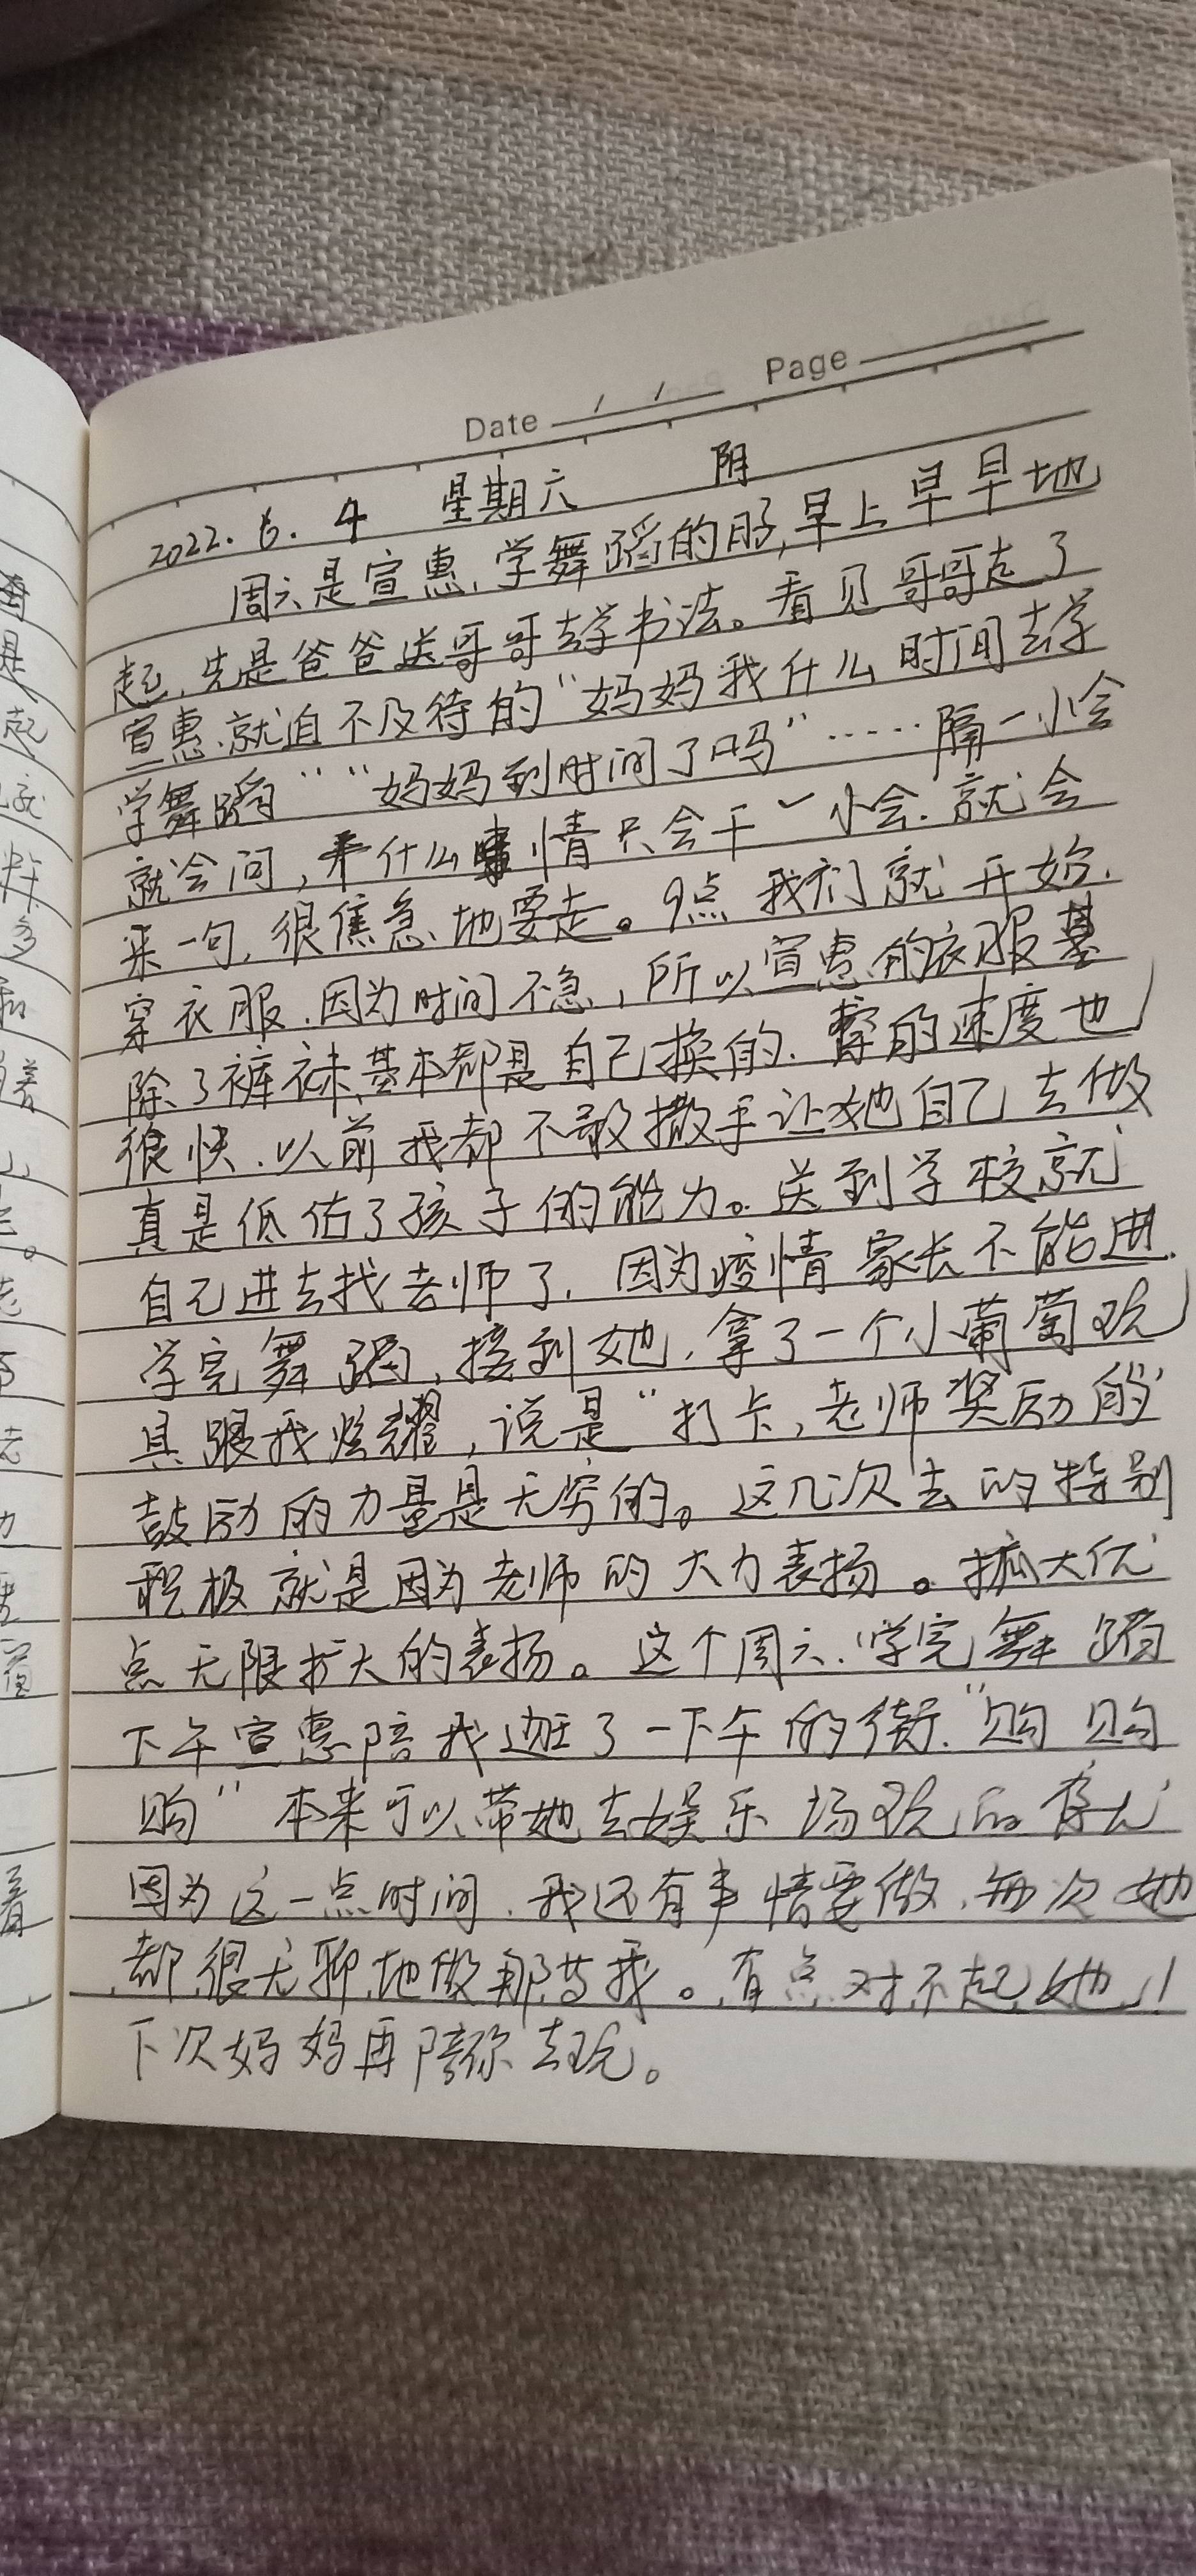 Date / / Page
2022.6.4 星期六 阴
周六是宣惠,学舞蹈的日子,早上早早地
起,先是爸爸送哥哥去学书法。看见哥哥走了
宣惠,就迫不及待的“妈妈我什么时间去学
学舞蹈”“妈妈到时间了吗”……隔一小会
就会问,干什么事情只会干一小会.就会
来一句,很焦急地要走。9点我们就开始.
穿衣服.因为时间不急,所以宣惠的衣服基
除了裤袜基本都是自己换的.穿的速度也
很快.以前我都不敢撒手让她自己去做
真是低估了孩子的能力。送到学校就
自己进去找老师了.因为疫情家长不能进.
学完舞蹈,接到她,拿了一个小葡萄玩
具跟我炫耀,说是“打卡,老师奖励的”
鼓励的力量是无穷的。这几次去的特别
积极就是因为老师的大力表扬。抓大优
点无限扩大的表扬。这个周六.学完舞蹈
下午宣惠陪我逛了一下午的街.“购购
购”本来可以带她去娱乐场玩
因为这一点时间.我还有事情要做.每次她
都很无聊地做那等我。有点对不起她!!
下次妈妈再陪你去玩。